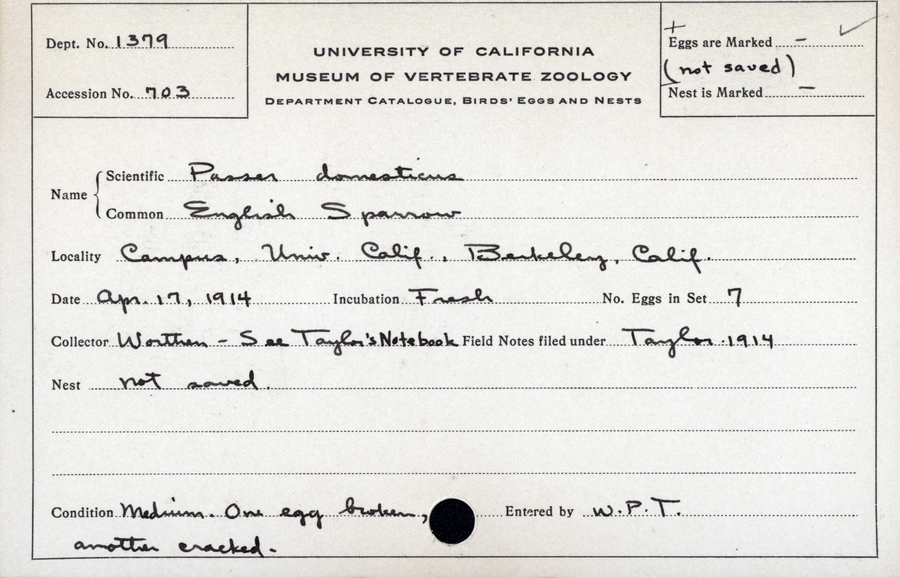 Dept. No. 1379
Accession No. 703
UNIVERSITY OF CALIFORNIA
MUSEUM OF VERTEBRATE ZOOLOGY
DEPARTMENT CATALOGUE, BIRDS' EGGS AND NESTS
+
Eggs are Marked – ✓
(not saved)
Nest is Marked –
Name { Scientific Passer domesticus
Common English Sparrow
Locality Campus, Univ. Calif., Berkeley, Calif.
Date Apr. 17, 1914 Incubation Fresh No. Eggs in Set 7
Collector Worthen – See Taylor's Notebook Field Notes filed under Taylor. 1914
Nest not saved.
Condition Medium. One egg broken, Entered by W. P. T.
another cracked.